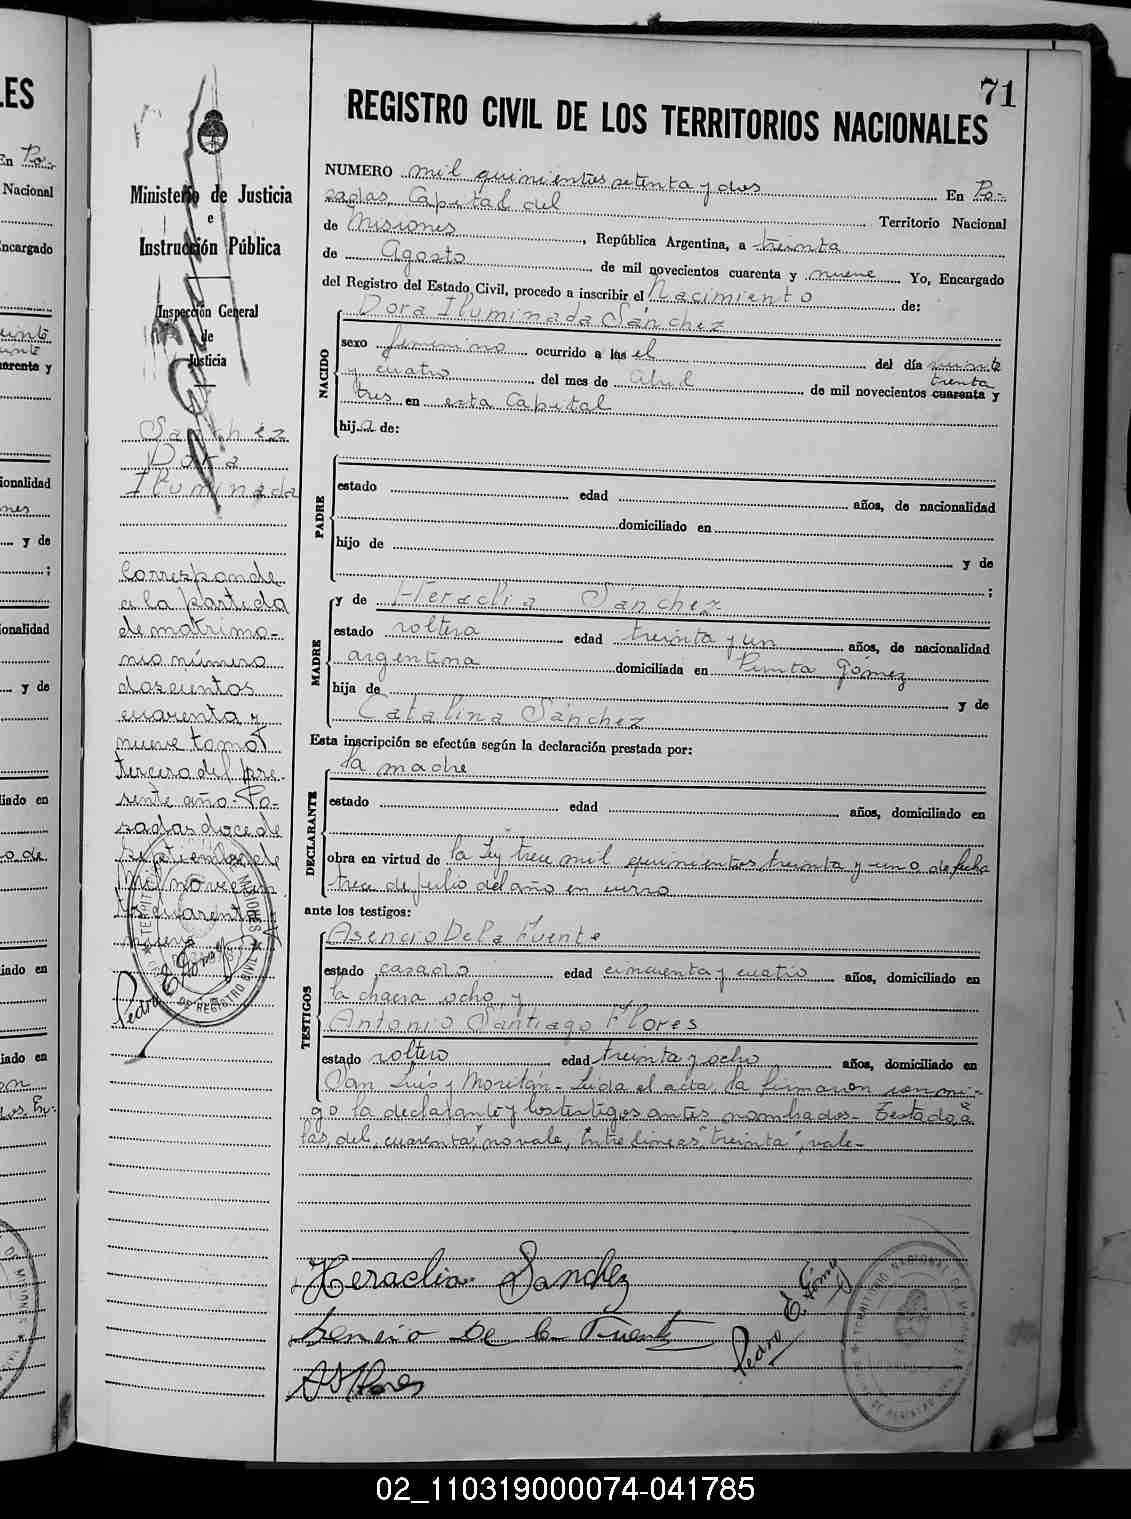 71
REGISTRO CIVIL DE LOS TERRITORIOS NACIONALES
NUMERO mil quinientos setenta y dos En Po-
sadas Capital del Territorio Nacional
de Misiones, República Argentina, a treinta
de Agosto de mil novecientos cuarenta y nueve Yo, Encargado
del Registro del Estado Civil, procedo a inscribir el Nacimiento de:
NACIDO
Dora Iluminada Sánchez
sexo femenino ocurrido a las el del día veinte
y cuatro del mes de abril treinta de mil novecientos cuarenta y
tres en esta Capital
hija de:
PADRE
estado edad años, de nacionalidad
domiciliado en
hijo de y de
;
MADRE
y de Heraclia Sánchez
estado soltera edad treinta y un años, de nacionalidad
argentina domiciliada en Punta Gómez
hija de y de
Catalina Sánchez
Esta inscripción se efectúa según la declaración prestada por:
DECLARANTE
la madre
estado edad años, domiciliado en
obra en virtud de la ley trece mil quinientos treinta y uno de fecha
trece de julio del año en curso
ante los testigos:
TESTIGOS
Asencio De la Fuente
estado casado edad cincuenta y cuatro años, domiciliado en
la chacra ocho y
Antonio Santiago Flores
estado soltero edad treinta y ocho años, domiciliado en
San Luis y Moritán - Leida el acta, la firmaron conmi-
go la declarante y los testigos antes nombrados - Testado, a
las, del, cuarenta, no vale, Entre líneas "treinta", vale-
Heraclia Sanchez
De la Fuente
A S Flores
Pedro E. Gómez
Ministerio de Justicia
e
Instrucción Pública
Inspección General
de
Justicia
Sanchez
Dora
Iluminada
Corresponde
a la partida
de matrimo-
nio número
doscientos
cuarenta y
nueve tomo
tercero del pre-
sente año - Po-
sadas doce de
Septiembre de
mil novecien
tos cuarenta
nueve
Pedro E Gómez
LES
En Po-
Nacional
Encargado
cuarenta y
ionalidad
y de
;
ionalidad
y de
iliado en
iado en
iado en
02_110319000074-041785